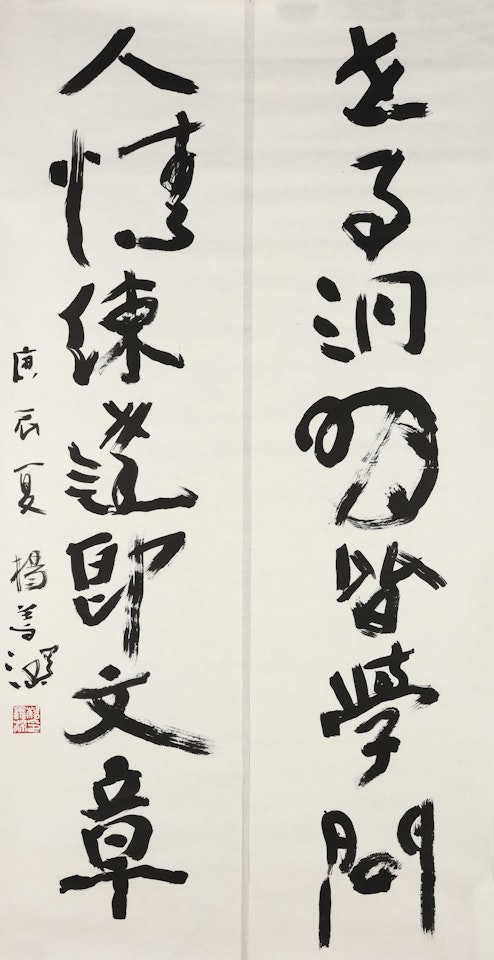 世事洞明皆學問
人情練達即文章
庚辰夏 楊善深